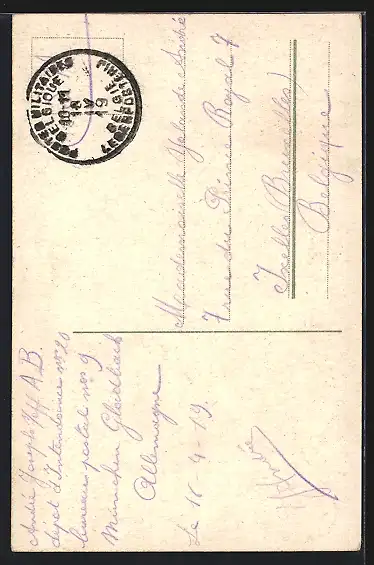 POSTES MILITAIRES
BELGIQUE
10-11
18
IV
19
BELGIE
LEGERPOSTERIJ
Mademoiselle Yolande André
7 rue du Prince Royal 7
Ixelles (Bruxelles)
Belgique
André Joseph A.B.
depot d'Intendance n° 20
bureau postal n° 9
München Gladbach
Allemagne
Le 18-4-19.